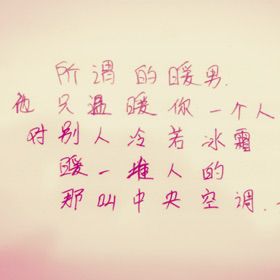 所谓的暖男.
他只温暖你一个人
对别人冷若冰霜
暖一堆人的
那叫中央空调.